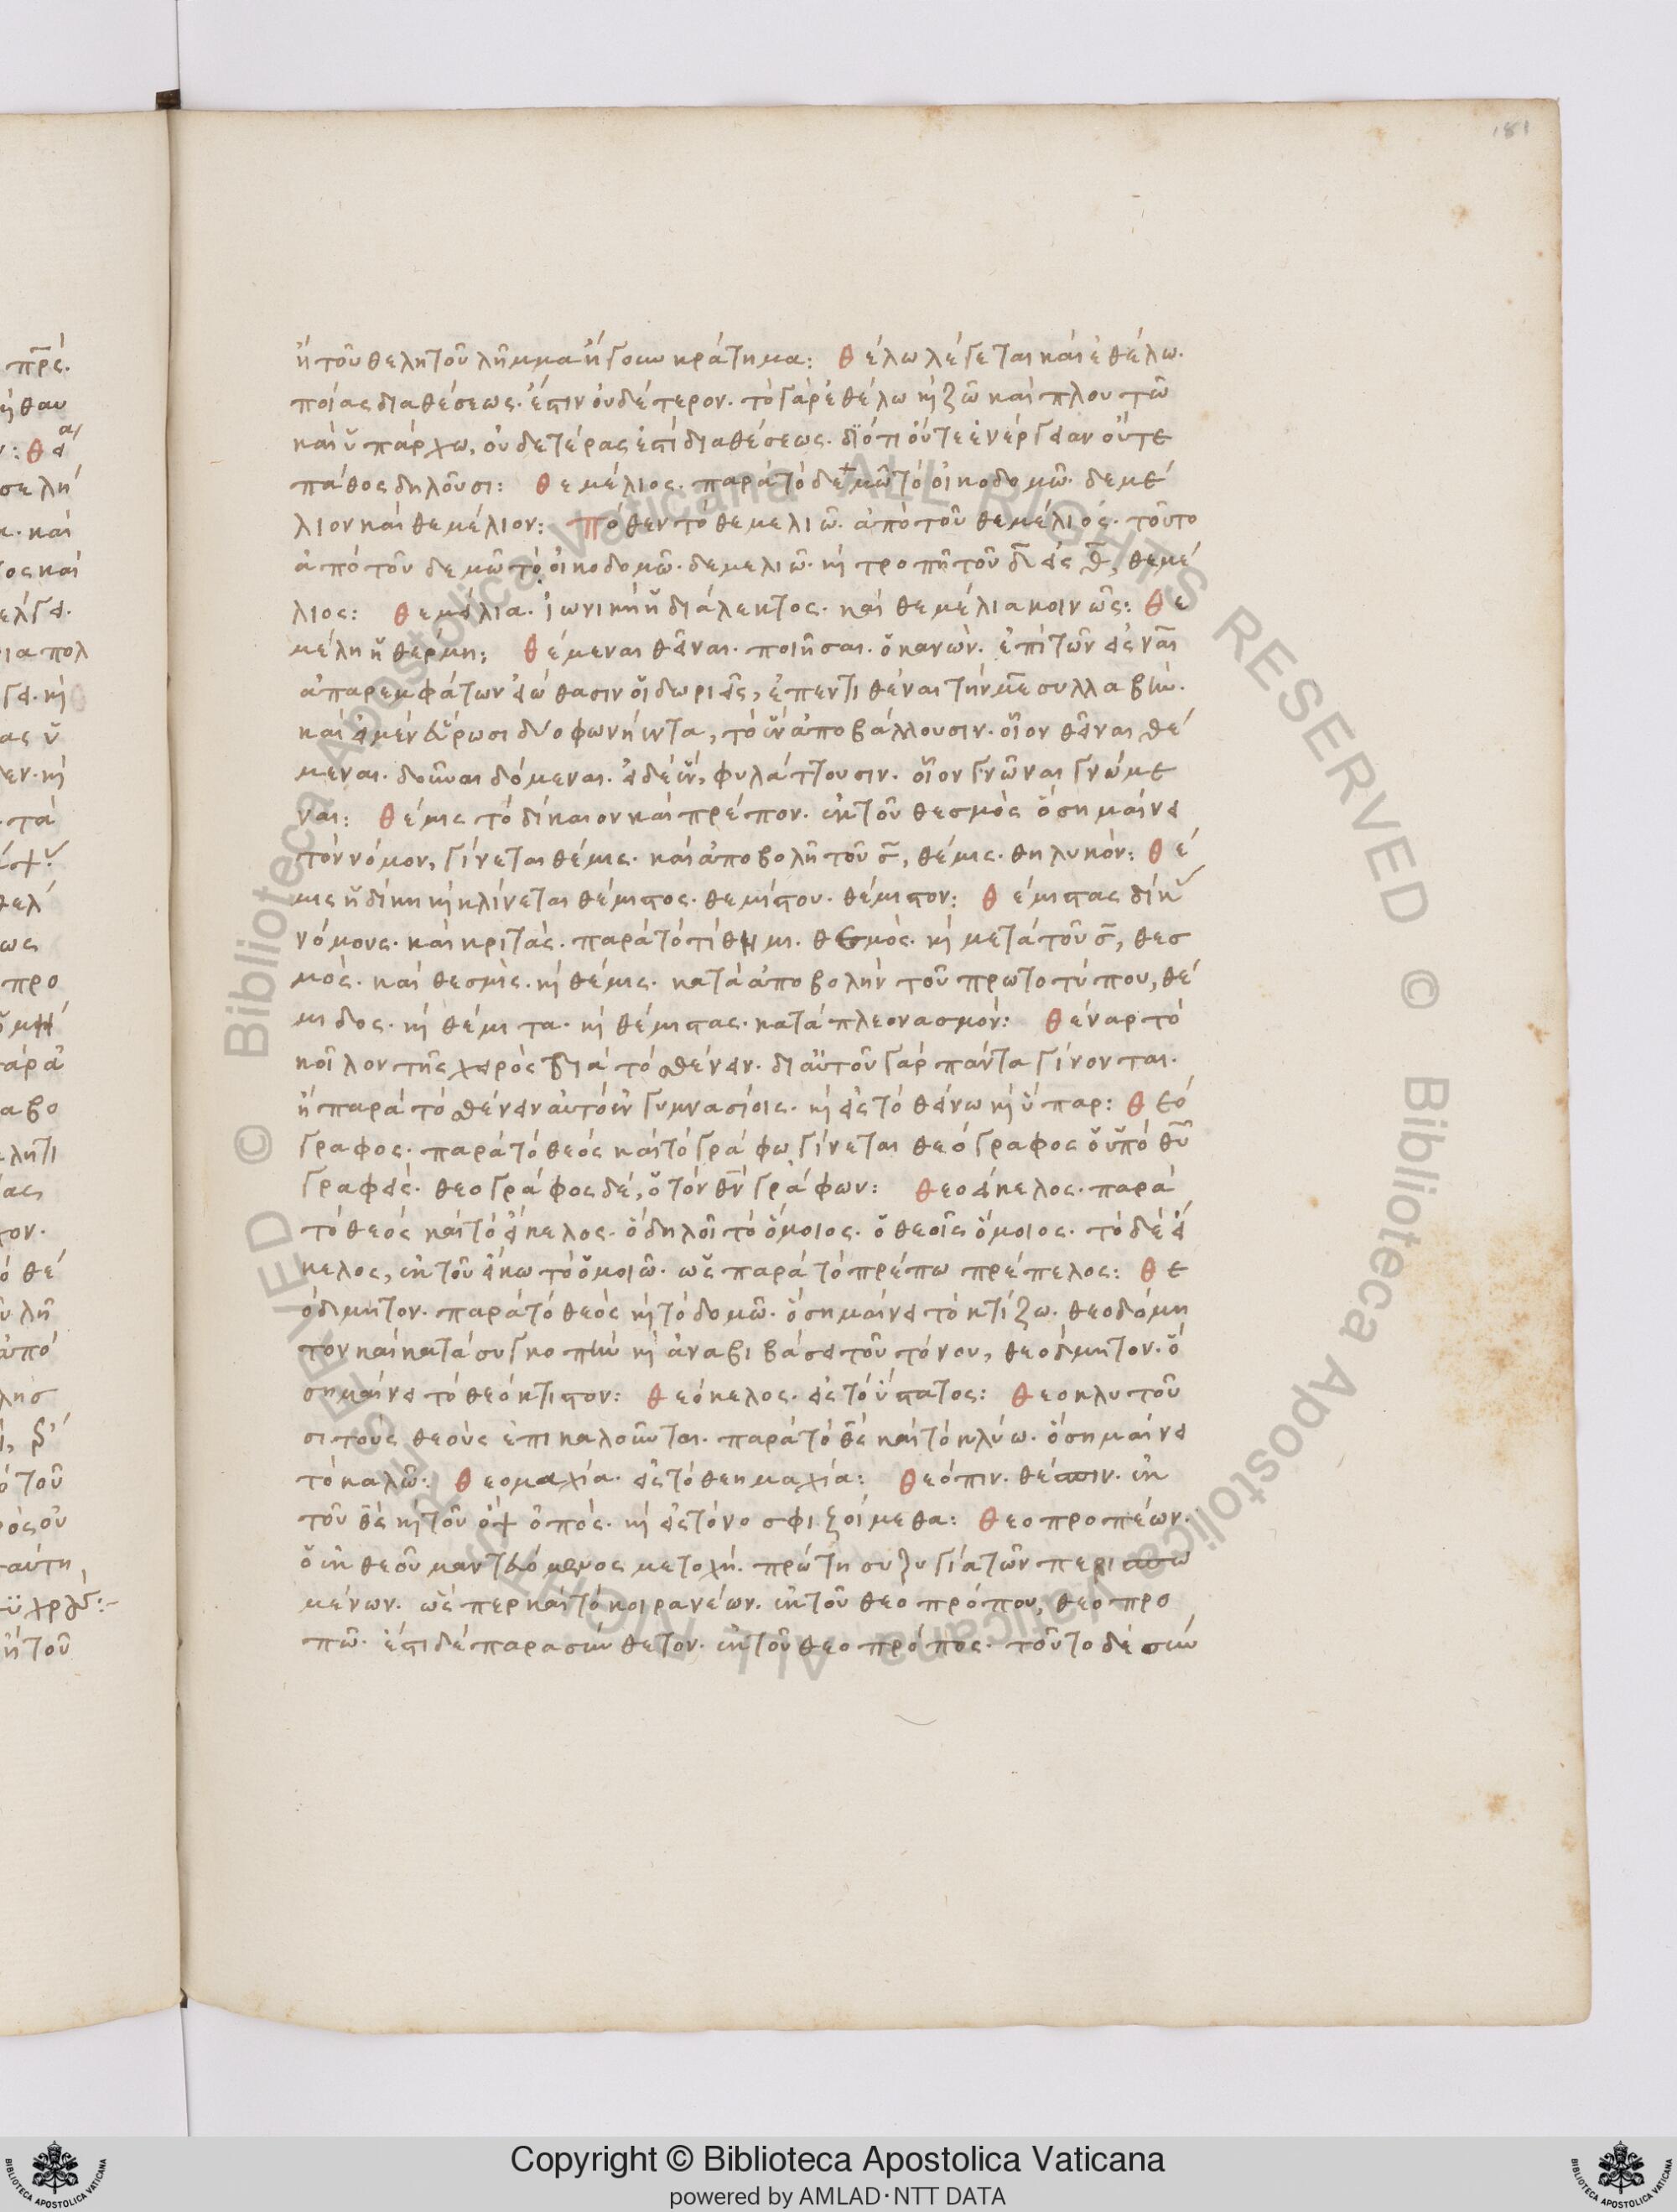 181
ἢ τοῦ θελητοῦ λῆμμα ἤγουν κράτημα: Θέλω λέγεται καὶ ἐθέλω.
ποίας διαθέσεως. ἔστιν οὐδέτερον. τὸ γὰρ ἐθέλω κὶ ζῶ καὶ πλουτῶ
καὶ ὑπάρχω, οὐδετέρας ἐστὶ διαθέσεως. διότι οὔτε ἐνέργειαν οὔτε
πάθος δηλοῦσι: Θεμέλιος. παρὰ τὸ δεμῶ τὸ οἰκοδομῶ. δεμέ
λιον καὶ θεμέλιον: Πόθεν τὸ θεμελιῶ. ἀπὸ τοῦ θεμέλιος. τοῦτο
ἀπὸ τοῦ δεμῶ τὸ οἰκοδομῶ. δεμελιῶ. κὶ τροπῆ τοῦ δ εἰς θ, θεμέ
λιος: Θεμείλια. ἰωνικὴ ἡ διάλεκτος. καὶ θεμέλια κοινῶς: Θε
μέλη ἡ θέρμη: Θέμεναι θεῖναι. ποιῆσαι. ὁ κανών. ἐπὶ τῶν εἰς ναι
ἀπαρεμφάτων εἰώθασιν οἱ δωριεῖς, ἐπεντιθέναι τὴν με συλλαβήν.
καὶ εἰ μὲν εὕρωσι δύο φωνήεντα, τὸ ἓν ἀποβάλλουσιν. οἷον θεῖναι θέ
μεναι. δοῦναι δόμεναι. εἰ δὲ ἕν, φυλάττουσιν. οἷον γνῶναι γνώμε
ναι: Θέμις τὸ δίκαιον καὶ πρέπον. ἐκ τοῦ θεσμὸς ὃ σημαίνει
τὸν νόμον, γίνεται θέμις. καὶ ἀποβολῆ τοῦ σ, θέμις. θηλυκόν: Θέ
μις ἡ δίκη κὶ κλίνεται θέμιστος. θεμίστου. θέμιστον: Θέμιστας δίκ
νόμους. καὶ κριτάς. παρὰ τὸ τίθημι. θεμός. κὶ μετὰ τοῦ σ, θεσ
μὸς. καὶ θεσμὶς. κὶ θέμις. κατὰ ἀποβολὴν τοῦ πρωτοτύπου, θέ
μιδος. κὶ θέμιτα. κὶ θέμιστας. κατὰ πλεονασμόν: Θέναρ τὸ
κοῖλον τῆς χειρὸς διὰ τὸ θένειν. δι αὐτοῦ γὰρ πάντα γίνονται.
ἢ παρὰ τὸ θένειν αὐτὸ ἐν γυμνασίοις. κὶ εἰς τὸ θείνω κὶ ὕπαρ: Θεό
γραφος. παρὰ τὸ θεός καὶ τὸ γράφω γίνεται θεόγραφος ὁ ὑπὸ θυ
γραφείς. θεογράφος δὲ, ὁ τὸν θν γράφων: Θεοείκελος. παρὰ
τὸ θεός καὶ τὸ εἴκελος. ὃ δηλοῖ τὸ ὅμοιος. ὁ θεοῖς ὅμοιος. τὸ δὲ εἴ
κελος, ἐκ τοῦ εἴκω τὸ ὁμοιῶ. ὡς παρὰ τὸ πρέπω πρέπελος: Θε
όδμητον. παρὰ τὸ θεός κὶ τὸ δομῶ. ὃ σημαίνει τὸ κτίζω. θεοδόμη
τον καὶ κατὰ συγκοπὴν κὶ ἀναβιβάσει τοῦ τόνου, θεόδμητον. ὃ
σημαίνει τὸ θεόκτιστον: Θεόκελος. εἰς τὸ ὕστατος: Θεοκλυτοῦ
σι τοὺς θεοὺς ἐπικαλοῦνται. παρὰ τὸ θς καὶ τὸ κλύω. ὃ σημαίνει
τὸ καλῶ: Θεομαχία. εἰς τὸ θεημαχία: Θεόπιν. θέσπιν. ἐκ
τοῦ θς κὶ τοῦ ὂψ ὀπός. κὶ εἰς τὸ νοσφιζοίμεθα: Θεοπροπέων.
ὁ ἐκ θεοῦ μαντευόμενος μετοχή. πρώτη συζυγία τῶν περισπω
μένων. ὥς περ καὶ τὸ κοιρανέων. ἐκ τοῦ θεοπρόπου, θεοπρο
πῶ. ἔστι δὲ παρασύνθετον. ἐκ τοῦ θεοπρόπος. τοῦτο δὲ σύν
Copyright © Biblioteca Apostolica Vaticana
powered by AMLAD·NTT DATA